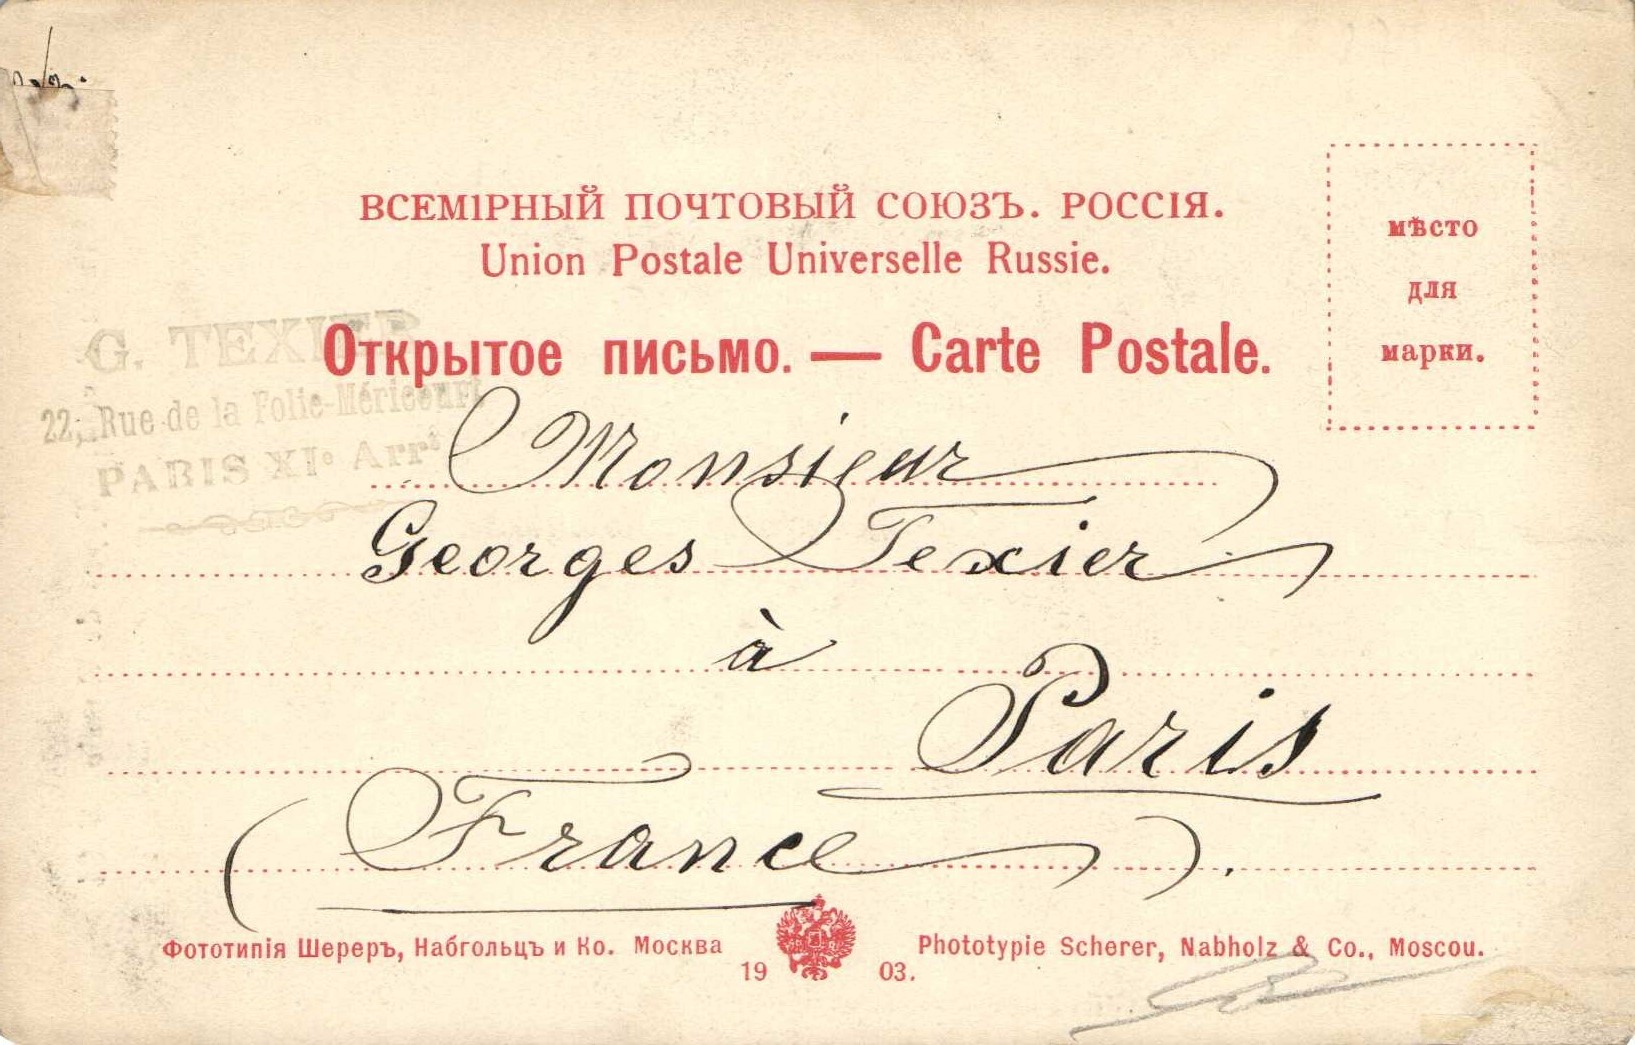 ВСЕМІРНЫЙ ПОЧТОВЫЙ СОЮЗЪ. РОССІЯ.
Union Postale Universelle Russie.
мѣсто
для
марки.
G. TEXIER
22, Rue de la Folie-Méricourt
PARIS XIe Arrt
Открытое письмо. — Carte Postale.
Monsieur
Georges Texier
à
Paris
(France).
Фототипія Шереръ, Набгольцъ и Ко. Москва
Phototypie Scherer, Nabholz & Co., Moscou.
19 03.